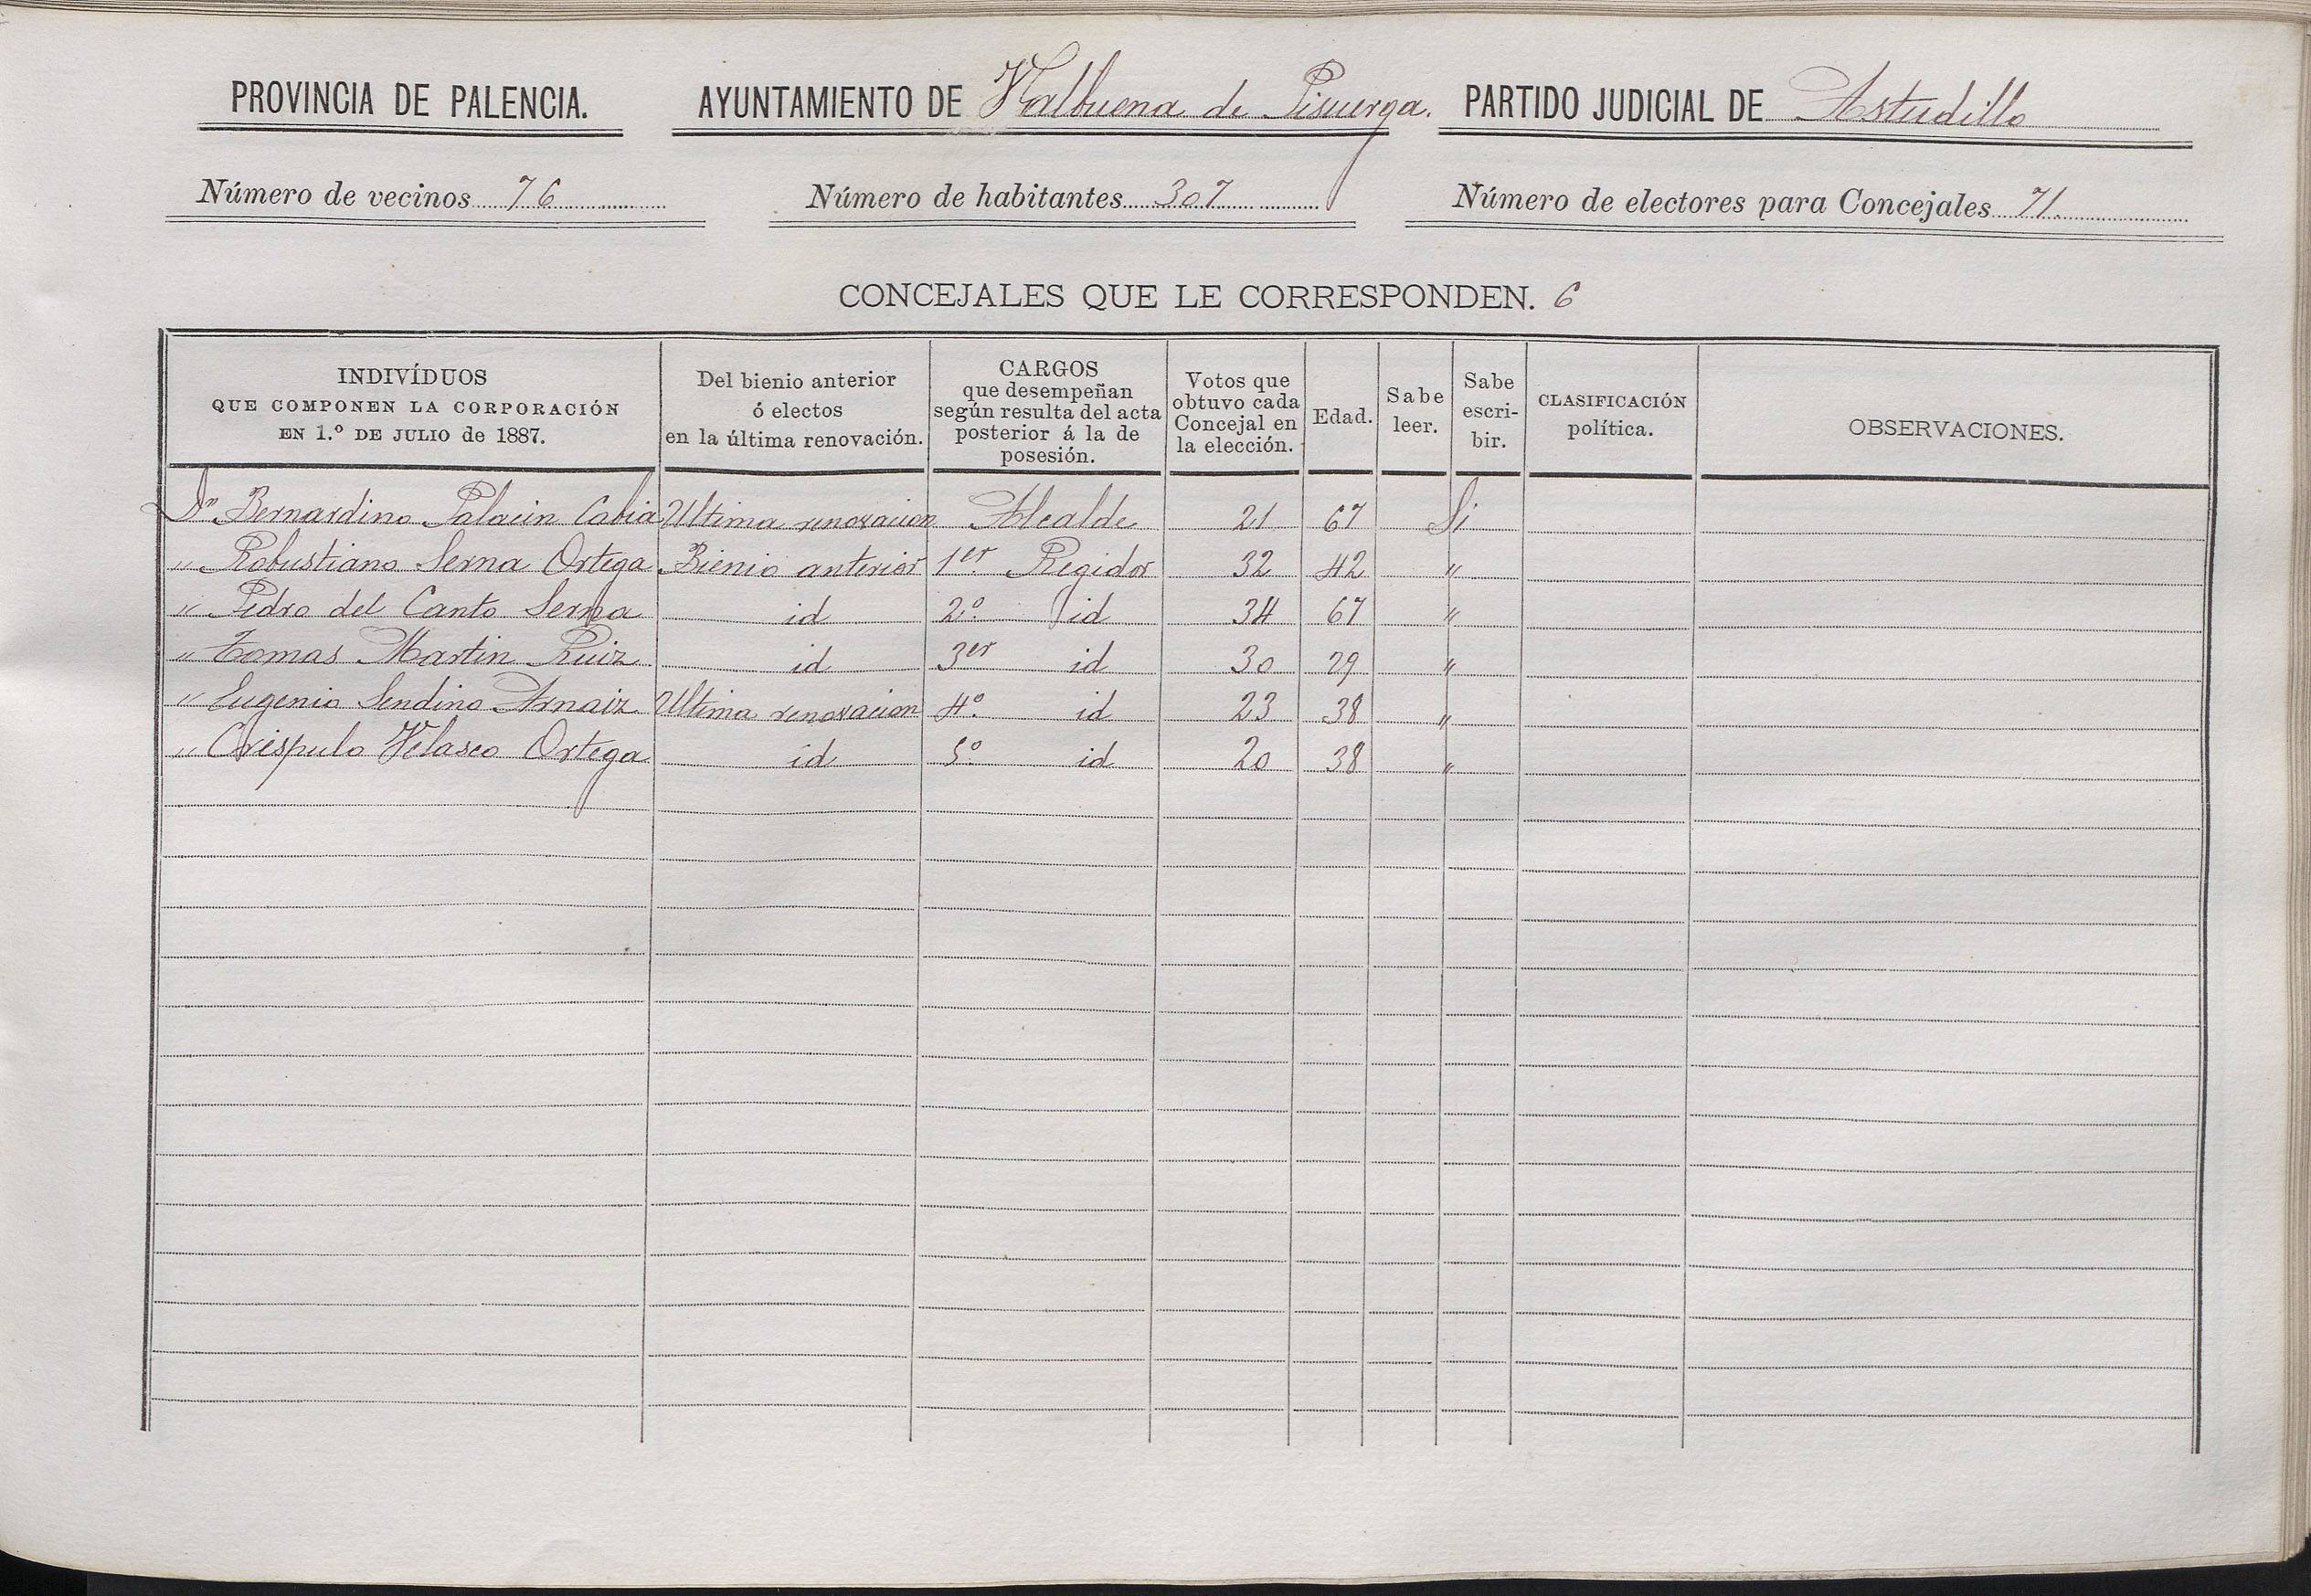 PROVINCIA DE PALENCIA. AYUNTAMIENTO DE Valbuena de Pisuerga. PARTIDO JUDICIAL DE Astudillo
Número de vecinos 76 Número de habitantes 307 Número de electores para Concejales 71.
CONCEJALES QUE LE CORRESPONDEN. 6
INDIVÍDUOS
QUE COMPONEN LA CORPORACIÓN
EN 1.º DE JULIO de 1887.
Del bienio anterior
ó electos
en la última renovación.
CARGOS
que desempeñan
según resulta del acta
posterior á la de
posesión.
Votos que
obtuvo cada
Concejal en
la elección.
Edad.
Sabe
leer.
Sabe
escri-
bir.
CLASIFICACIÓN
política.
OBSERVACIONES.
Dn Bernardino Palacin Cabia Ultima renovacion Alcalde 21 67 Si
" Robustiano Serna Ortega Bienio anterior 1er Regidor 32 42 "
" Pedro del Canto Serna id 2º id 34 67 "
" Tomas Martin Ruiz id 3er id 30 29 "
" Eugenio Sendino Arnaiz Ultima renovacion 4º id 23 38 "
" Crispulo Velasco Ortega id 5º id 20 38 "